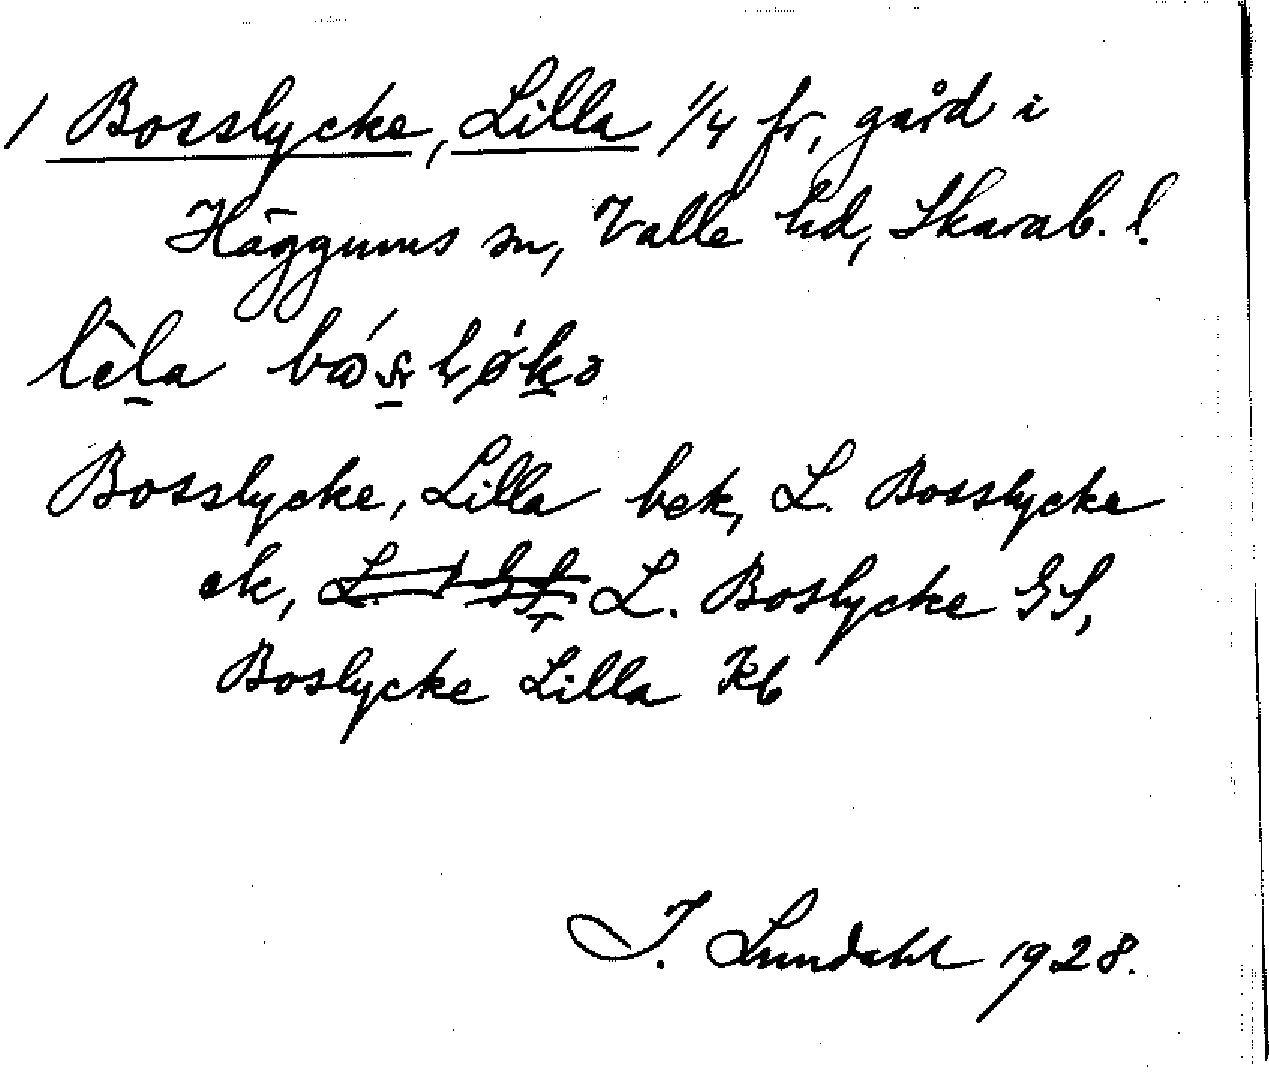 / Bosslycke, Lilla 1/4 fr, gård i
Häggums sn, Valle hd, Skarab. l.
Bosslycke, Lilla bek, L. Bosslycke
ek, L. Boslycke GS,
Boslycke Lilla Kb
I. Lundahl 1928.